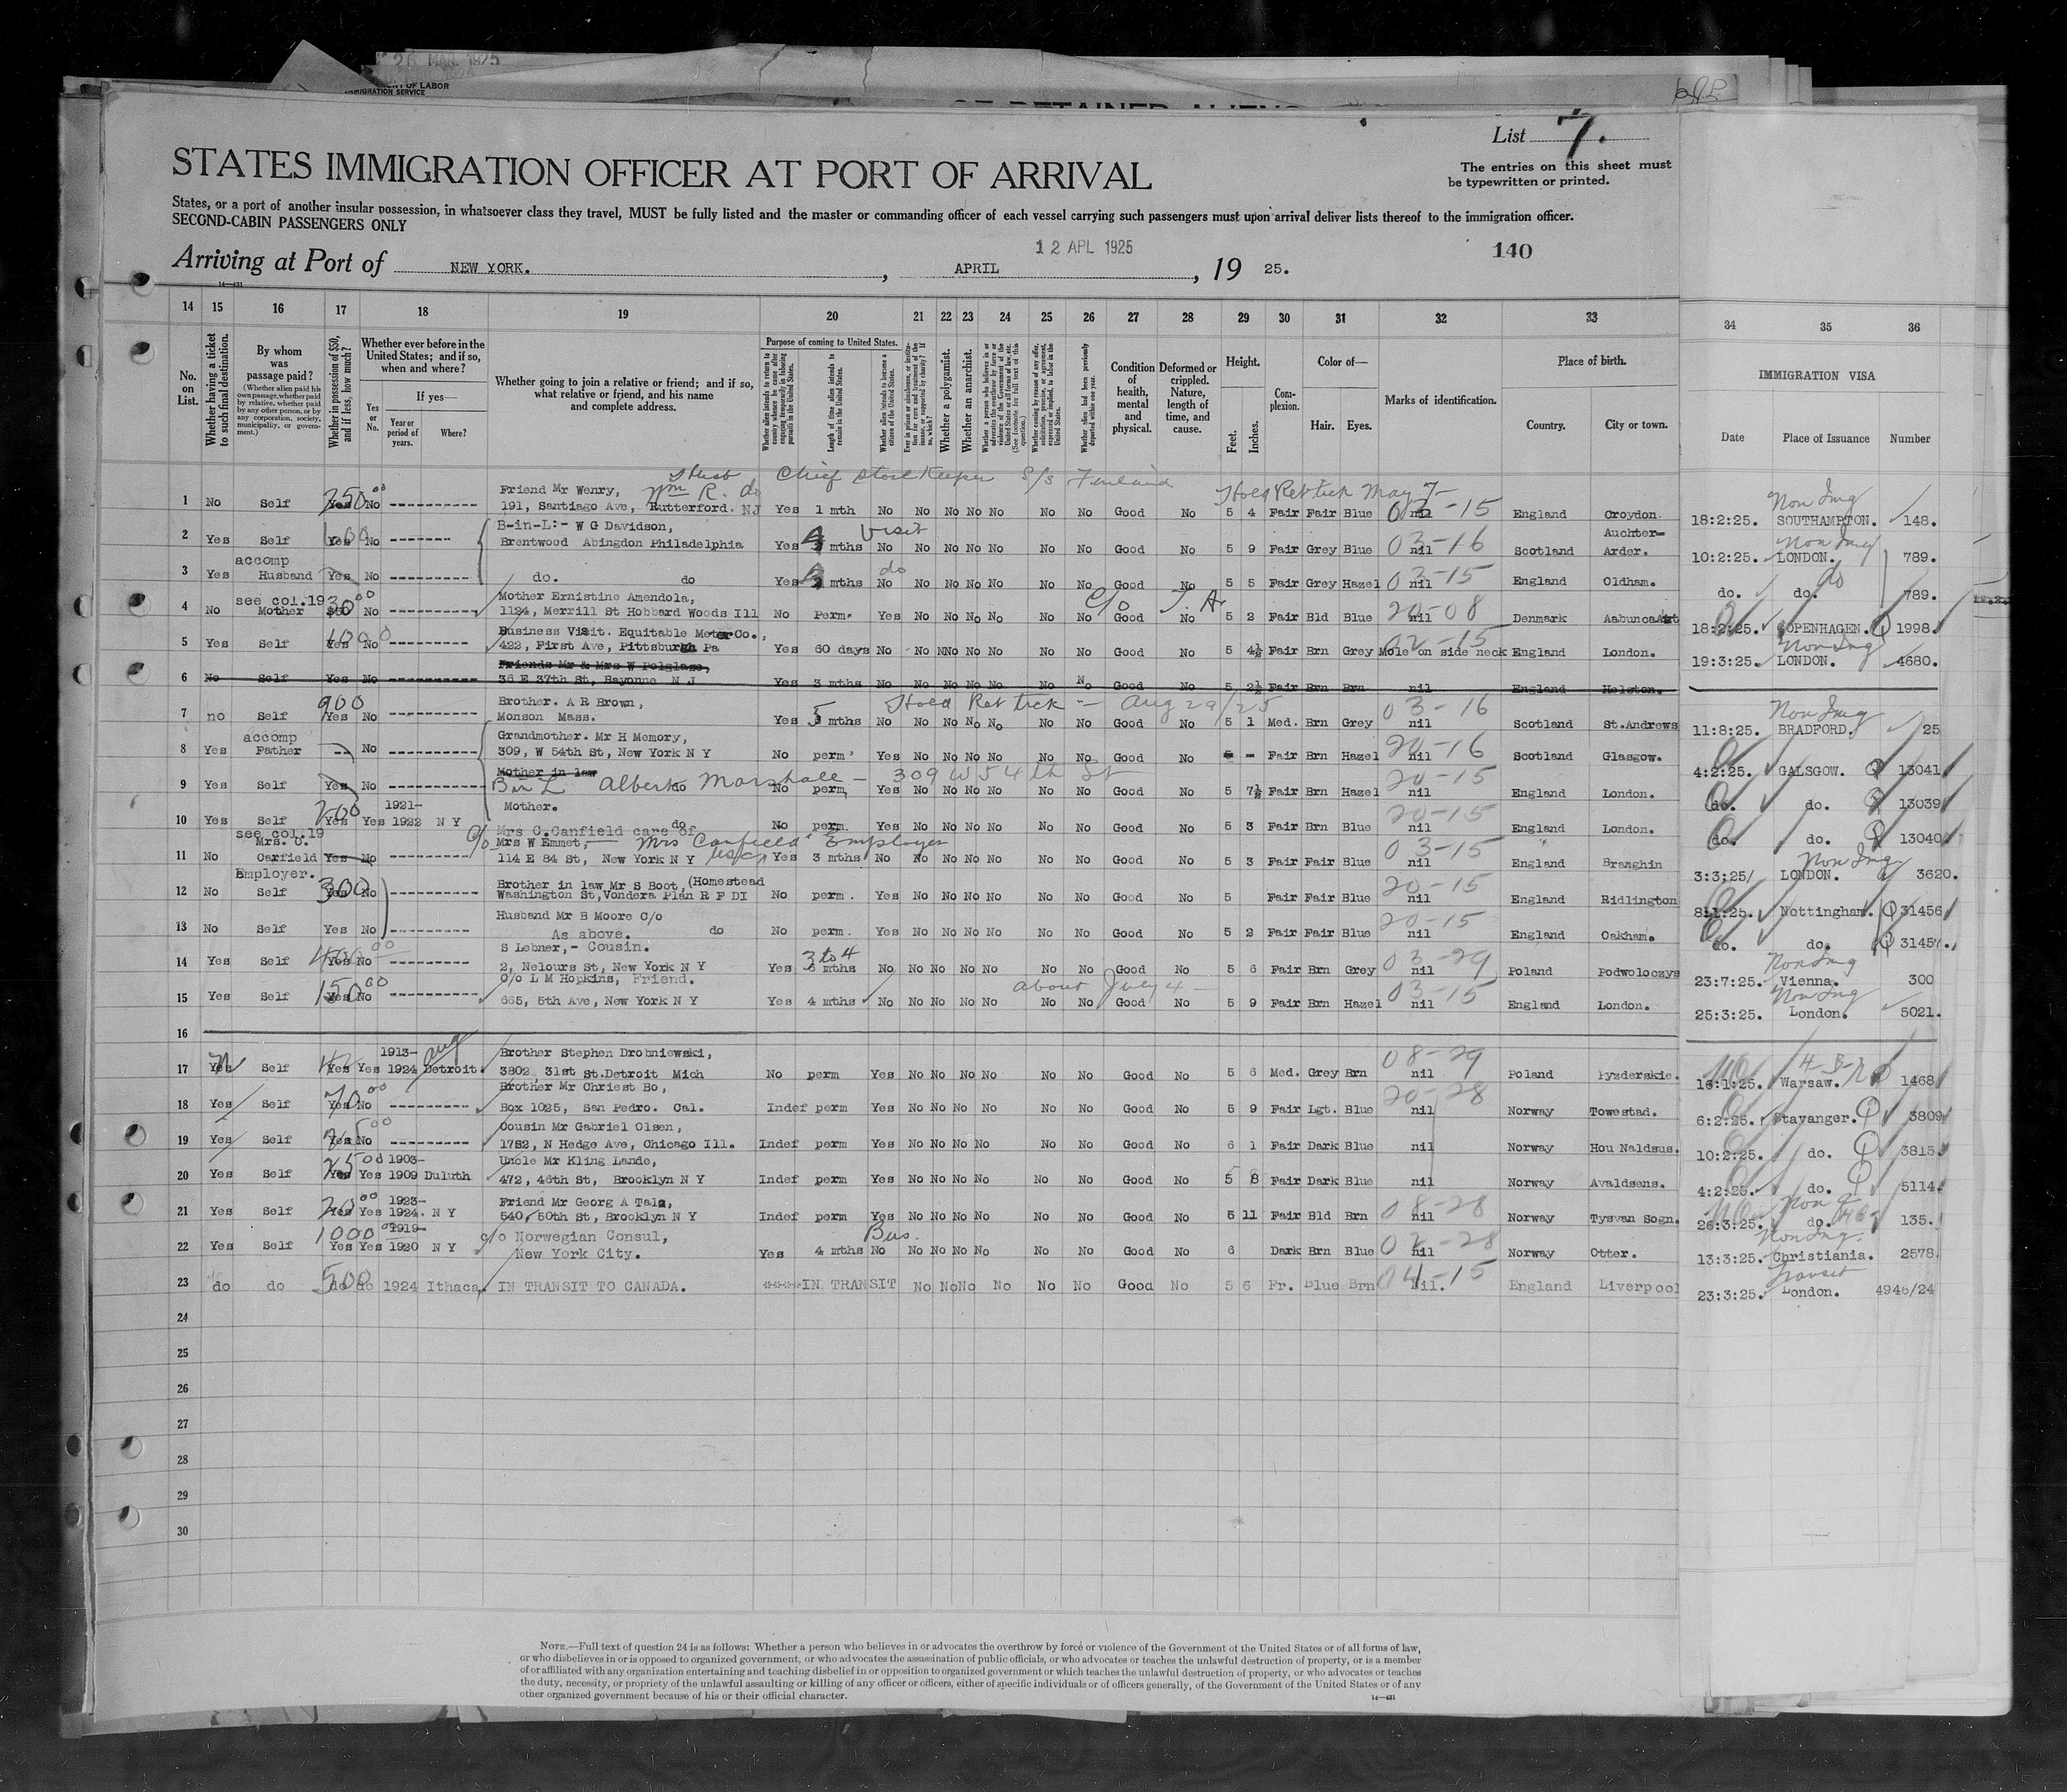 26 MAR. 1925
OF LABOR
IMMIGRATION SERVICE
List 7.
The entries on this sheet must
be typewritten or printed.
STATES IMMIGRATION OFFICER AT PORT OF ARRIVAL
States, or a port of another insular possession, in whatsoever class they travel, MUST be fully listed and the master or commanding officer of each vessel carrying such passengers must upon arrival deliver lists thereof to the immigration officer.
SECOND-CABIN PASSENGERS ONLY
12 APL 1925
140
Arriving at Port of NEW YORK. , APRIL , 19 25.
14 15 16 17 18 19 20 21 22 23 24 25 26 27 28 29 30 31 32 33 34 35 36
No. on List.
Whether having a ticket to such final destination.
By whom was passage paid?
(Whether alien paid his own passage, whether paid by relative, whether paid by any other person, or by any corporation, society, municipality, or government.)
Whether in possession of $50, and if less, how much?
Whether ever before in the United States; and if so, when and where?
Yes or No.
If yes—
Year or period of years.
Where?
Whether going to join a relative or friend; and if so, what relative or friend, and his name and complete address.
Purpose of coming to United States.
Length of time alien intends to remain in the United States.
Whether alien intends to become a citizen of the United States.
Whether a polygamist.
Whether an anarchist.
Condition of health, mental and physical.
Deformed or crippled. Nature, length of time, and cause.
Height.
Feet. Inches.
Complexion.
Color of—
Hair. Eyes.
Marks of identification.
Place of birth.
Country. City or town.
IMMIGRATION VISA
Date Place of Issuance Number
Chief Store Keeper S/S Finland
Wm R. do
Hold Ret tick May 7-
Non Img
1 No Self Yes No Friend Mr Wenry,
191, Santiago Ave, Rutterford. NJ Yes 1 mth No No No No No No No Good No 5 4 Fair Fair Blue nil 03-15 England Croydon 18:2:25. SOUTHAMPTON. 148.
2 Yes Self Yes No B-in-L:- W G Davidson,
Brentwood Abingdon Philadelphia Yes 4 mths Visit No No No No No No No Good No 5 9 Fair Grey Blue 03-16 nil Scotland Auchter-
Arder. 10:2:25. LONDON. 789.
3 Yes accomp Husband Yes No do. do Yes mths do No No No No No No No Good No 5 5 Fair Grey Hazel 03-15 nil England Oldham. do. do. 789.
4 No see col.19 Mother $50 No Mother Ernistine Amendola,
1124, Merrill St Hobbard Woods Ill No Perm. Yes No No No No No No Good No 5 2 Fair Bld Blue 20-08 nil Denmark 18:2:25. COPENHAGEN. 1998.
5 Yes Self Yes No Business Visit. Equitable Meter Co.,
422, First Ave, Pittsburgh Pa Yes 60 days No No No No No No No Good No 5 4½ Fair Brn Grey 02-15 Mole on side neck England London. 19:3:25. LONDON. 4680.
6 No Self Yes No Friends Mr & Mrs W Polglase,
36 E 37th St, Bayonne N J Yes 3 mths No No No No No No No Good No 5 2½ Fair Brn Brn nil England Helston.
Hold Ret tick - Aug 29/25
7 no Self 900 Yes No Brother. A R Brown,
Monson Mass. Yes 5 mths No No No No No No No Good No 5 1 Med. Brn Grey 03-16 nil Scotland St.Andrews 11:8:25. BRADFORD. 25
8 Yes accomp Father No Grandmother. Mr H Memory,
309, W 54th St, New York N Y No perm Yes No No No No No No Good No Fair Brn Hazel 20-16 nil Scotland Glasgow. 4:2:25. GALSGOW. 13041
9 Yes Self Yes No Mother in law
B in L Alberto Marshall - 309 W 54th St No perm, Yes No No No No No No Good No 5 7½ Fair Brn Hazel 20-15 nil England London. do. do. 13039
10 Yes Self 200 Yes Yes 1921-
1922 N Y Mother.
do No perm. Yes No No No No No No Good No 5 3 Fair Brn Blue 20-15 nil England London. do. do. 13040
11 No see col.19 Mrs. C. Carfield Employer. Yes No Mrs C.Canfield care of
c/o Mrs W Emmet, - Mrs Canfield Employer
114 E 84 St, New York N Y Yes 3 mths No No No No No No No Good No 5 3 Fair Fair Blue 03-15 nil England Branghin 3:3:25/ LONDON. 3620.
12 No Self 300 Yes No Brother in law Mr S Boot, (Homestead
Washington St, Vondera Plan R F DI No perm. Yes No No No No No No Good No 5 Fair Fair Blue 20-15 nil England Ridlington Nottingham. 31456
13 No Self Yes No Husband Mr B Moore C/o
As above. do No perm. Yes No No No No No No Good No 5 2 Fair Fair Blue 20-15 nil England Oakham. do. do. 31457.
14 Yes Self Yes No S Lebner,- Cousin.
2, Nelours St, New York N Y Yes 3 to 4 mths No No No No No No No Good No 5 6 Fair Brn Grey 03-29 nil Poland Podwoloczys 23:7:25. Vienna. 300
15 Yes Self 150 Yes No C/o L M Hopkins, Friend.
665, 5th Ave, New York N Y Yes 4 mths No No No No about July 4 - No No No Good No 5 9 Fair Brn Hazel 03-15 nil England London. 25:3:25. London. 5021.
16
17 Yes Self Yes Yes 1913-
1924 Aug Detroit. Brother Stephen Drobniewski,
3802, 31st St.Detroit Mich No perm Yes No No No No No No Good No 5 6 Med. Grey Brn 08-29 nil Poland Pyzderskie. 16:1:25. Warsaw. 1468
18 Yes Self 70 Yes No Brother Mr Chriest Bo,
Box 1025, San Pedro. Cal. Indef perm Yes No No No No No No Good No 5 9 Fair Lgt. Blue 20-28 nil Norway Towestad. 6:2:25. Stavanger. 3809
19 Yes Self Yes No Cousin Mr Gabriel Olsen,
1782, N Hedge Ave, Chicago Ill. Indef perm Yes No No No No No No Good No 6 1 Fair Dark Blue nil Norway Hou Naldsus. 10:2:25. do. 3815
20 Yes Self Yes Yes 1903-
1909 Duluth Uncle Mr Kling Lande,
472, 46th St, Brooklyn N Y Indef perm Yes No No No No No No Good No 5 8 Fair Dark Blue nil Norway Avaldsens. 4:2:25. do. 5114
21 Yes Self Yes Yes 1923-
1924. N Y Friend Mr Georg A Tala,
540, 50th St, Brooklyn N Y Indef perm Yes No No No No No No Good No 5 11 Fair Bld Brn 08-28 nil Norway Tysvan Sogn. 26:3:25. do. 135.
22 Yes Self 1000 Yes Yes 1919-
1920 N Y c/o Norwegian Consul,
New York City. Yes 4 mths Bus. No No No No No No No Good No 6 Dark Brn Blue 02-28 nil Norway Otter. 13:3:25. Christiania. 2578
23 do do 500 do do 1924 Ithaca, IN TRANSIT TO CANADA. ****IN TRANSIT No No No No No No Good No 5 6 Fr. Blue Brn 04-15 nil. England Liverpool 23:3:25. Transit London. 4946/24
24
25
26
27
28
29
30
NOTE.—Full text of question 24 is as follows: Whether a person who believes in or advocates the overthrow by force or violence of the Government of the United States or of all forms of law,
or who disbelieves in or is opposed to organized government, or who advocates the assassination of public officials, or who advocates or teaches the unlawful destruction of property, or is a member
of or affiliated with any organization entertaining and teaching disbelief in or opposition to organized government or which teaches the unlawful destruction of property, or who advocates or teaches
the duty, necessity, or propriety of the unlawful assaulting or killing of any officer or officers, either of specific individuals or of officers generally, of the Government of the United States or of any
other organized government because of his or their official character.
14—431